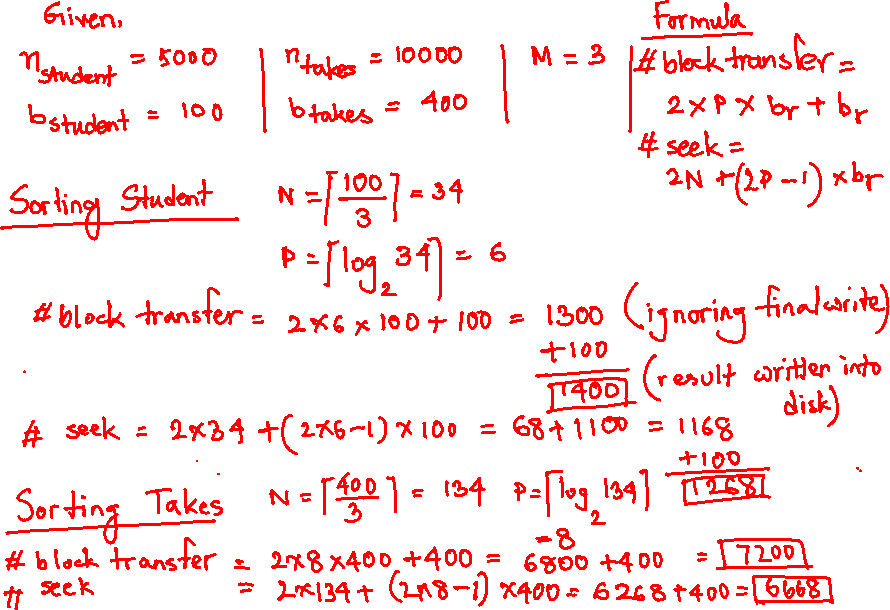 Given,
n_student = 5000 | n_takes = 10000 | M = 3
b_student = 100 | b_takes = 400
Formula
# block transfer =
2 x P x br + br
# seek =
2N + (2P - 1) x br
Sorting Student
N = ⌈100/3⌉ = 34
P = ⌈log_2 34⌉ = 6
# block transfer = 2 x 6 x 100 + 100 = 1300 (ignoring final write)
+100
1400 (result written into disk)
# seek = 2x34 + (2x6-1) x 100 = 68 + 1100 = 1168
+100
1268
Sorting Takes
N = ⌈400/3⌉ = 134 P = ⌈log_2 134⌉
= 8
# block transfer = 2x8x400 + 400 = 6800 + 400 = 7200
# seek = 2x134 + (2x8-1) x 400 = 6268 + 400 = 6668